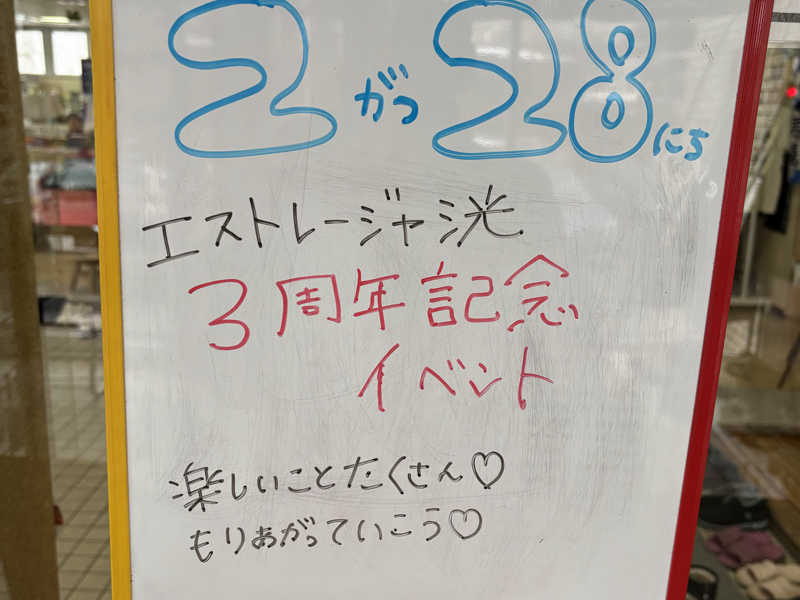 2がつ28にち
エストレージャ洸
3周年記念
イベント
楽しいことたくさん♡
もりあがっていこう♡